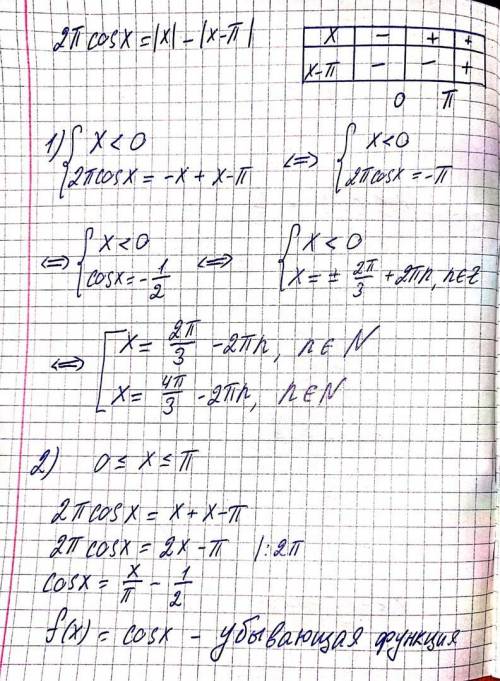 2πcosx = |x| - |x-π|
x - + +
x-π - - +
0 π
1) { x < 0 ⟺ { x < 0
2πcosx = -x + x - π 2πcosx = -π
⟺ { x < 0 ⟺ { x < 0
cosx = -1/2 x = ± 2π/3 + 2πn, n∈Z
⟺ [ x = 2π/3 - 2πn, n∈N
x = 4π/3 - 2πn, n∈N
2) 0 ≤ x ≤ π
2πcosx = x + x - π
2πcosx = 2x - π |:2π
cosx = x/π - 1/2
f(x) = cosx - убывающая функция